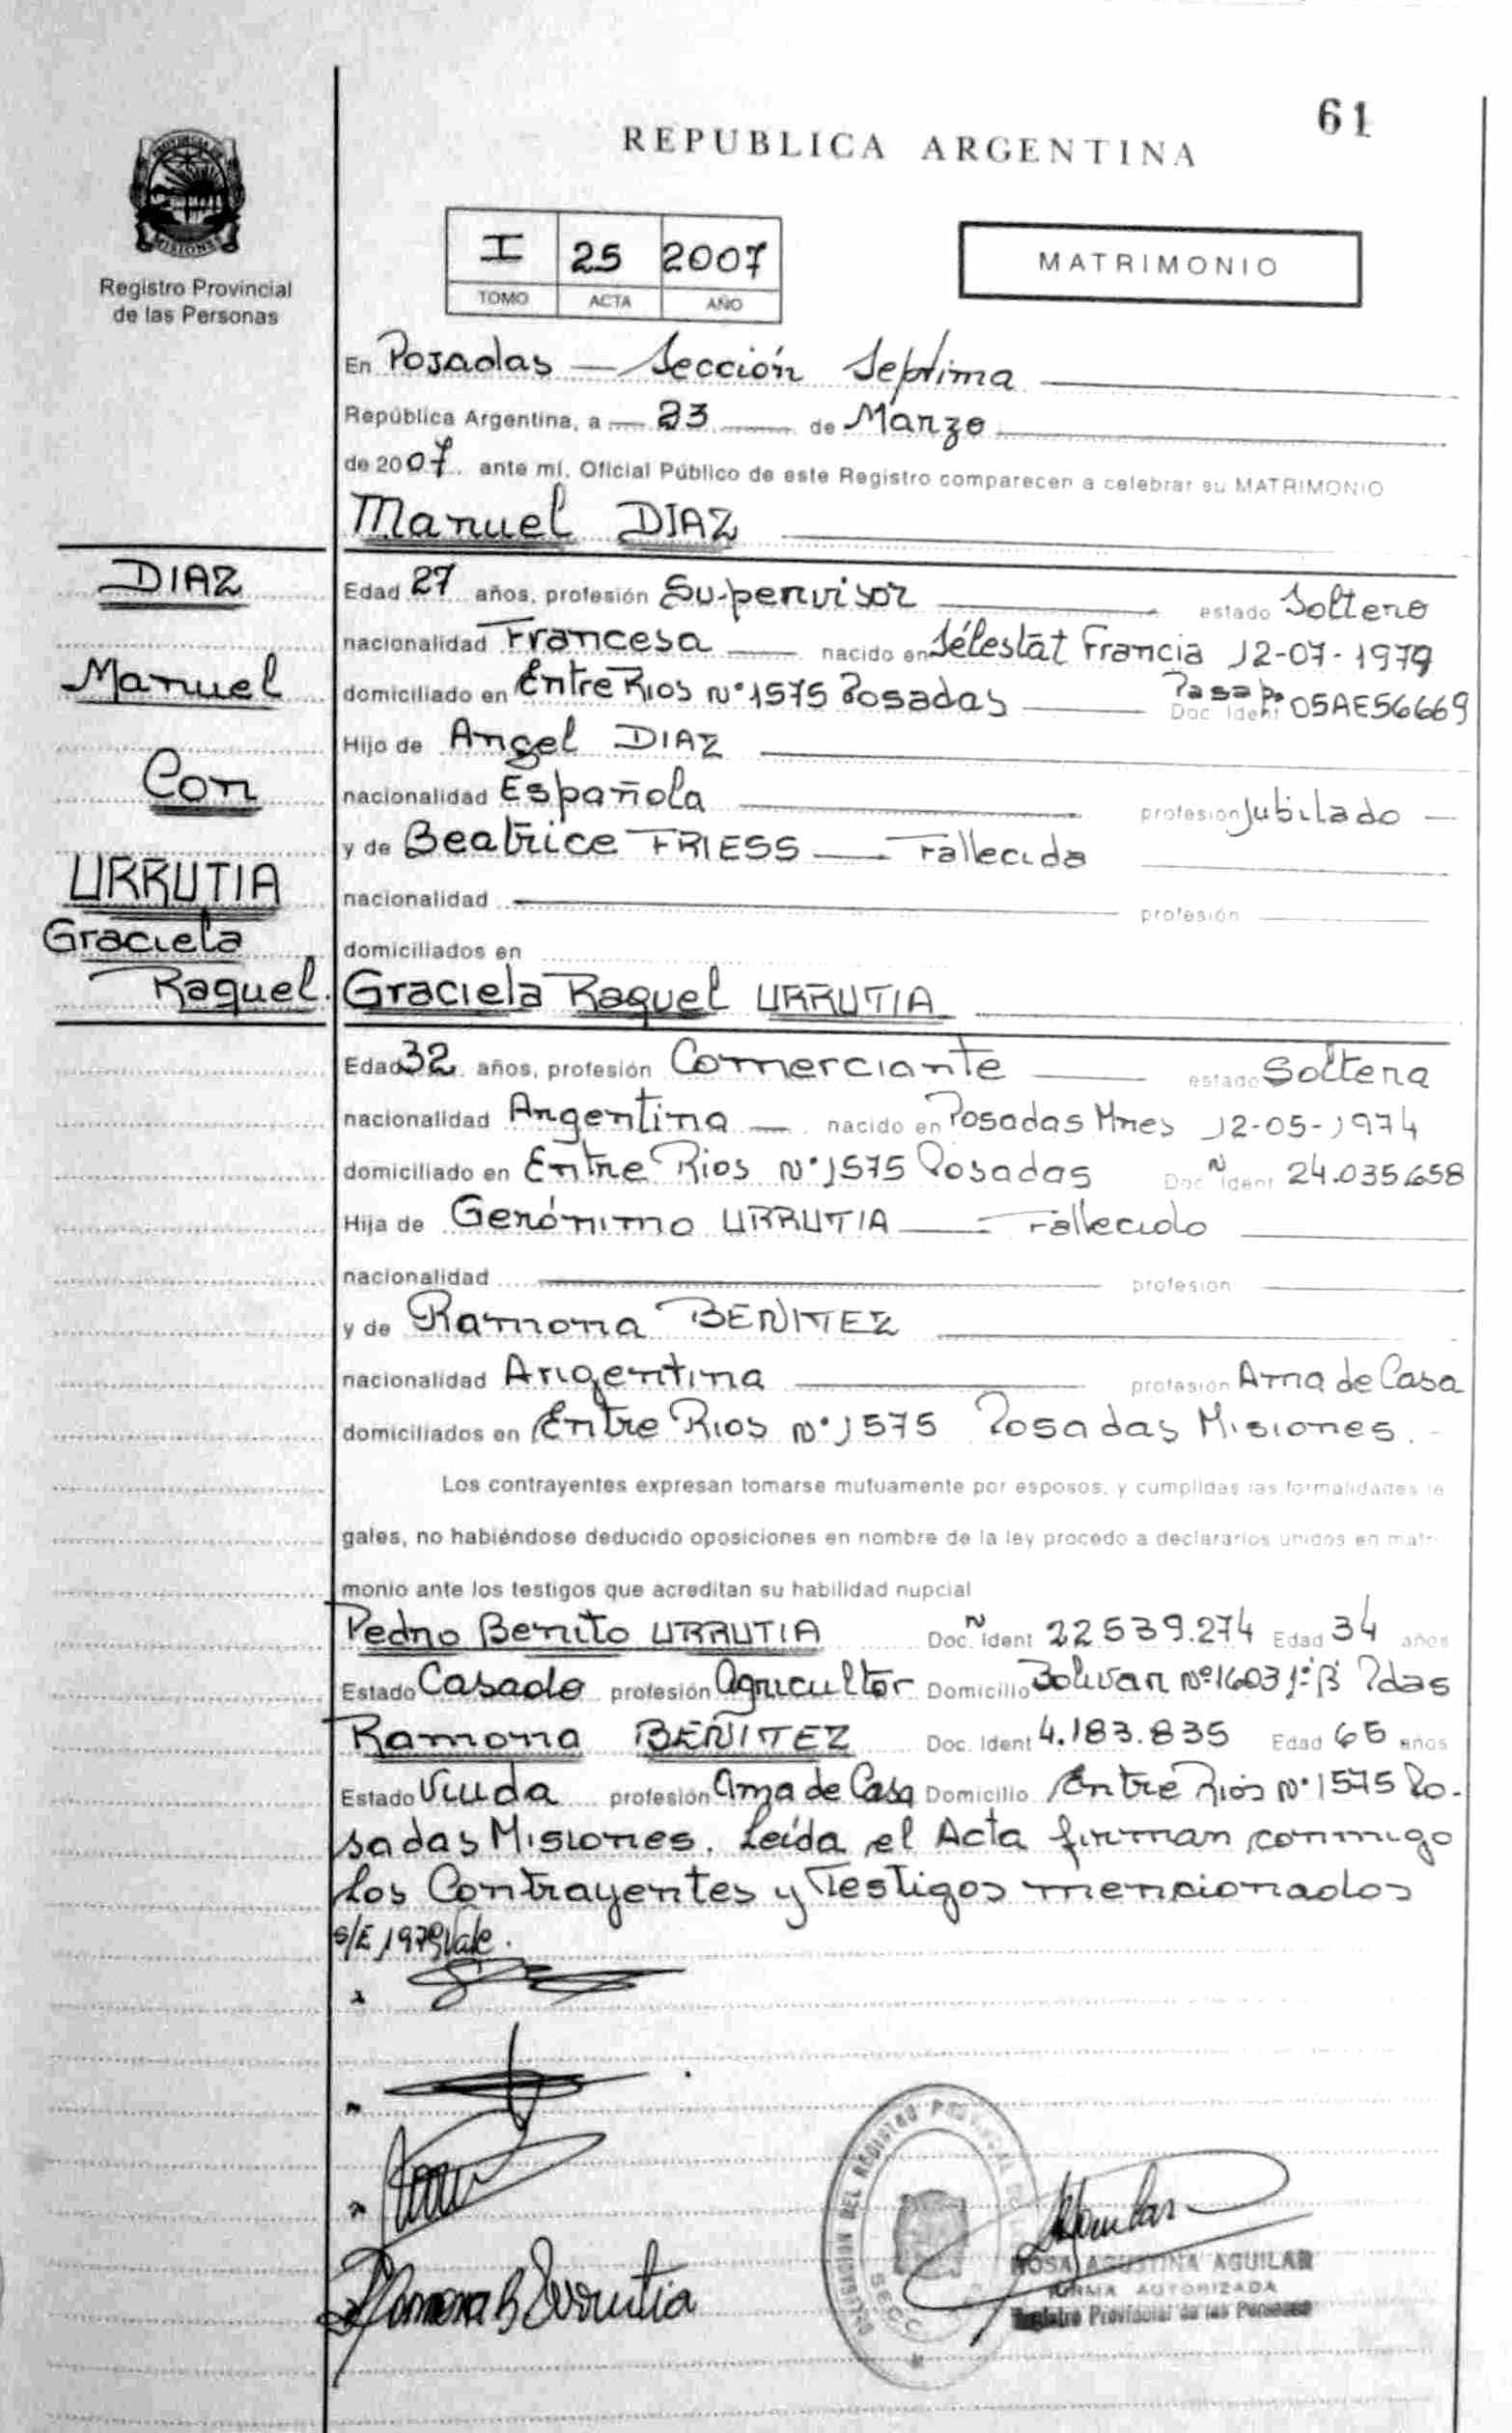 61
REPUBLICA ARGENTINA
PROVINCIA DE
MISIONES
Registro Provincial
de las Personas
I 25 2007
TOMO ACTA AÑO
MATRIMONIO
En Posadas — Sección Septima
República Argentina, a — 23 — de Marzo
de 2007. ante mí, Oficial Público de este Registro comparecen a celebrar su MATRIMONIO
Manuel DIAZ
DIAZ
Manuel
Con
URRUTIA
Graciela
Raquel.
Edad 27 años, profesión Supervisor estado Soltero
nacionalidad Francesa — nacido en Sélestat Francia 12-07-1979
domiciliado en Entre Rios Nº 1575 Posadas — Pasap. Doc Ident 05AE56669
Hijo de Angel DIAZ
nacionalidad Española profesión Jubilado —
y de Beatrice FRIESS — Fallecida
nacionalidad profesión
domiciliados en
Graciela Raquel URRUTIA
Edad 32 años, profesión Comerciante — estado Soltera
nacionalidad Argentina — nacido en Posadas Mnes 12-05-1974
domiciliado en Entre Rios Nº 1575 Posadas Doc N Ident 24.035.658
Hija de Gerónimo URRUTIA — Fallecido
nacionalidad profesión
y de Ramona BENITEZ
nacionalidad Argentina profesión Ama de Casa
domiciliados en Entre Rios Nº 1575 Posadas Misiones. -
Los contrayentes expresan tomarse mutuamente por esposos, y cumplidas las formalidades le
gales, no habiéndose deducido oposiciones en nombre de la ley procedo a declararlos unidos en matri
monio ante los testigos que acreditan su habilidad nupcial
Pedro Benito URRUTIA Doc. N Ident 22.539.274 Edad 34 años
Estado Casado profesión Agricultor Domicilio Bolivar Nº 1603 1º B Pdas
Ramona BENITEZ Doc. Ident 4.183.835 Edad 65 años
Estado Viuda profesión Ama de Casa Domicilio Entre Rios Nº 1575 Po-
sadas Misiones. Leída el Acta firman conmigo
los Contrayentes y Testigos mencionados
S/E 1979 Vale.
Ramona B Urrutia
DELEGACION DEL REGISTRO PROVINCIAL DE
SECC
Aguilar
ROSA AGUSTINA AGUILAR
FIRMA AUTORIZADA
Registro Provincial de las Personas